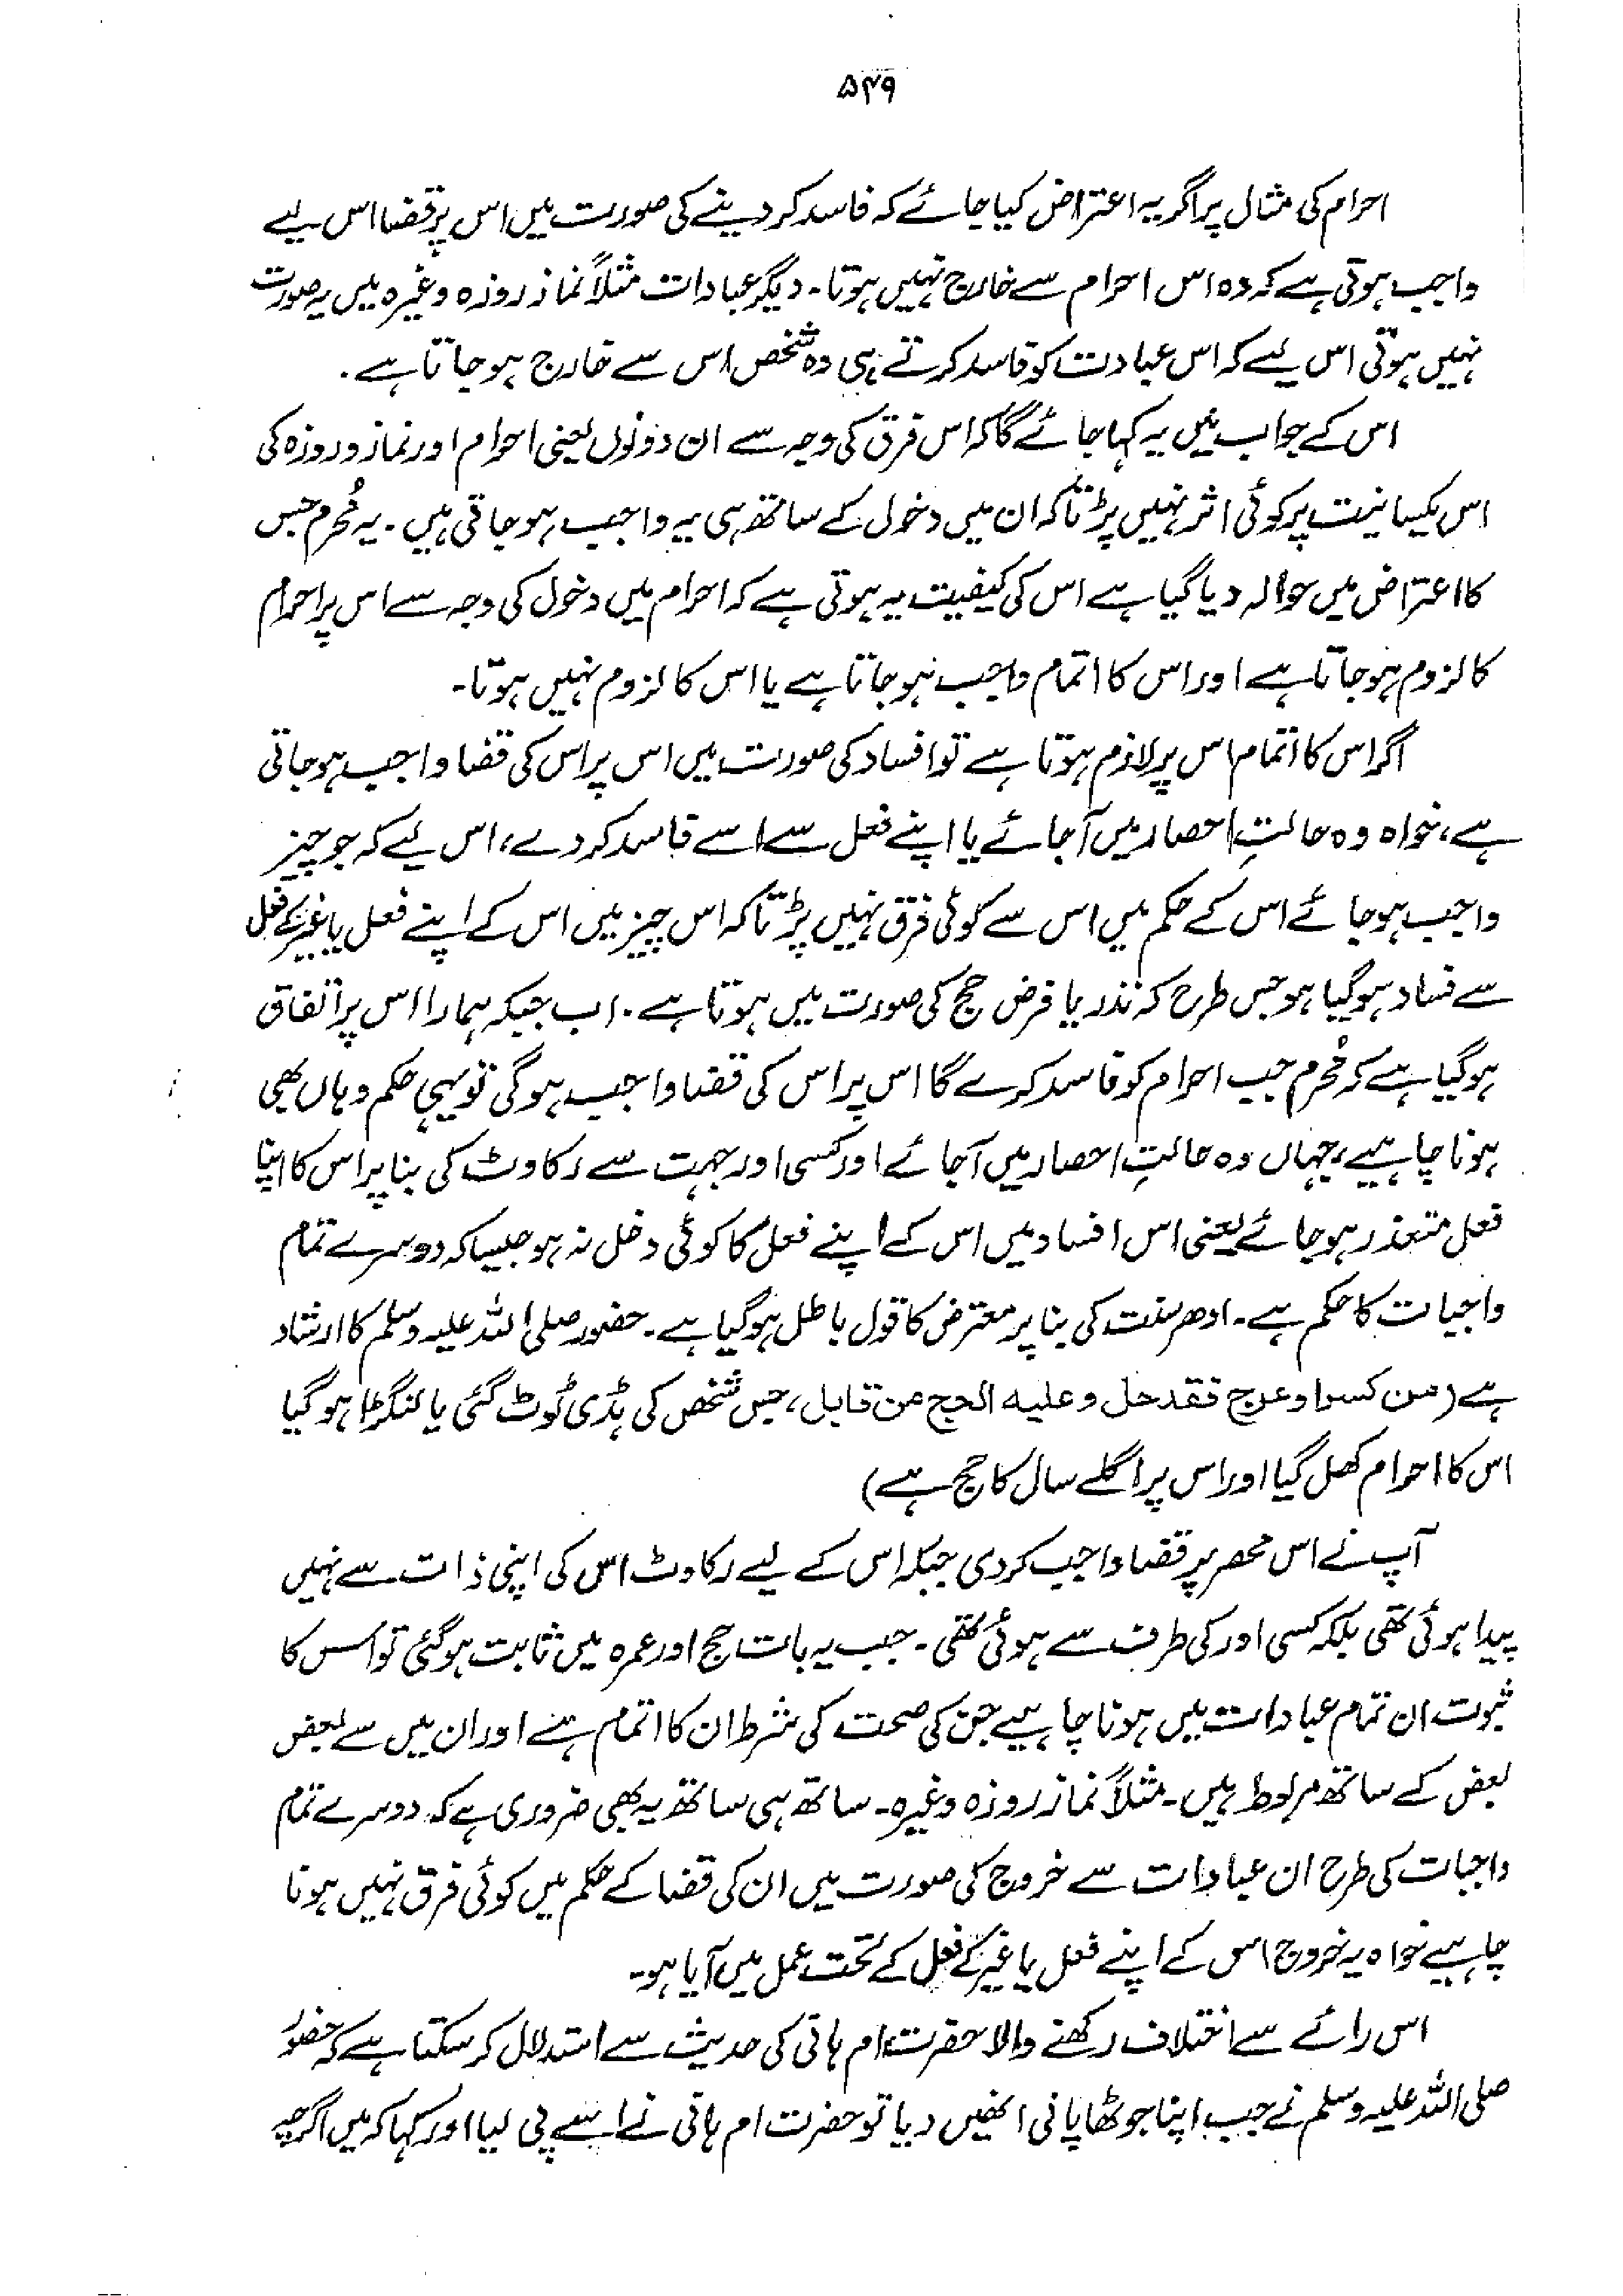 ۵۴۹
احرام کی مثال پر اگر یہ اعتراض کیا جائے کہ فاسد کر دینے کی صورت میں اس پر قضا اس لیے
واجب ہوتی ہے کہ وہ اس احرام سے خارج نہیں ہوتا۔ دیگر عبادات مثلاً نماز روزہ وغیرہ میں یہ صورت
نہیں ہوتی اس لیے کہ اس عبادت کو فاسد کرتے ہی وہ شخص اس سے خارج ہو جاتا ہے۔
اس کے جواب میں یہ کہا جائے گا کہ اس فرق کی وجہ سے ان دونوں یعنی احرام اور نماز و روزہ کی
اس یکسانیت پر کوئی اثر نہیں پڑتا کہ ان میں دخول کے ساتھ ہی یہ واجب ہو جاتی ہیں۔ یہ مُحرم جس
کا اعتراض میں حوالہ دیا گیا ہے اس کی کیفیت یہ ہوتی ہے کہ احرام میں دخول کی وجہ سے اس پر احرام
کا لزوم ہو جاتا ہے اور اس کا اتمام واجب ہو جاتا ہے یا اس کا لزوم نہیں ہوتا۔
اگر اس کا اتمام اس پر لازم ہوتا ہے تو افساد کی صورت میں اس پر اس کی قضا واجب ہو جاتی
ہے، خواہ وہ حالتِ احصار میں آ جائے یا اپنے فعل سے اسے فاسد کر دے، اس لیے کہ جو چیز
واجب ہو جائے اس کے حکم میں اس سے کوئی فرق نہیں پڑتا کہ اس چیز میں اس کے اپنے فعل یا غیر کے فعل
سے فساد ہو گیا ہو جس طرح کہ نذر یا فرض حج کی صورت میں ہوتا ہے۔ اب جبکہ ہمارا اس پر اتفاق
ہو گیا ہے کہ مُحرم جب احرام کو فاسد کرے گا اس پر اس کی قضا واجب ہو گی تو یہی حکم وہاں بھی
ہونا چاہیے، جہاں وہ حالتِ احصار میں آ جائے اور کسی اور جہت سے رکاوٹ کی بنا پر اس کا اپنا
فعل متعذر ہو جائے یعنی اس افساد میں اس کے اپنے فعل کا کوئی دخل نہ ہو جیسا کہ دوسرے تمام
واجبات کا حکم ہے۔ ادھر سنت کی بنا پر معترض کا قول باطل ہو گیا ہے۔ حضور صلی اللہ علیہ وسلم کا ارشاد
ہے (من کسر او عرج فقد حل و علیہ الحج من قابل، جس شخص کی ہڈی ٹوٹ گئی یا لنگڑا ہو گیا
اس کا احرام کھل گیا اور اس پر اگلے سال کا حج ہے)
آپ نے اس محصر پر قضا واجب کر دی جبکہ اس کے لیے رکاوٹ اس کی اپنی ذات سے نہیں
پیدا ہوئی تھی بلکہ کسی اور کی طرف سے ہوئی تھی۔ جب یہ بات حج اور عمرہ میں ثابت ہو گئی تو اس کا
ثبوت ان تمام عبادات میں ہونا چاہیے جن کی صحت کی شرط ان کا اتمام ہے اور ان میں سے بعض
بعض کے ساتھ مربوط ہیں۔ مثلاً نماز روزہ وغیرہ۔ ساتھ ہی ساتھ یہ بھی ضروری ہے کہ دوسرے تمام
واجبات کی طرح ان عبادات سے خروج کی صورت میں ان کی قضا کے حکم میں کوئی فرق نہیں ہونا
چاہیے خواہ یہ خروج اس کے اپنے فعل یا غیر کے فعل کے تحت عمل میں آیا ہو۔
اس رائے سے اختلاف رکھنے والا حضرت ام ہانی کی حدیث سے استدلال کر سکتا ہے کہ حضورؐ
صلی اللہ علیہ وسلم نے جب اپنا جوٹھا پانی انھیں دیا تو حضرت ام ہانی نے اسے پی لیا اور کہا کہ میں اگرچہ